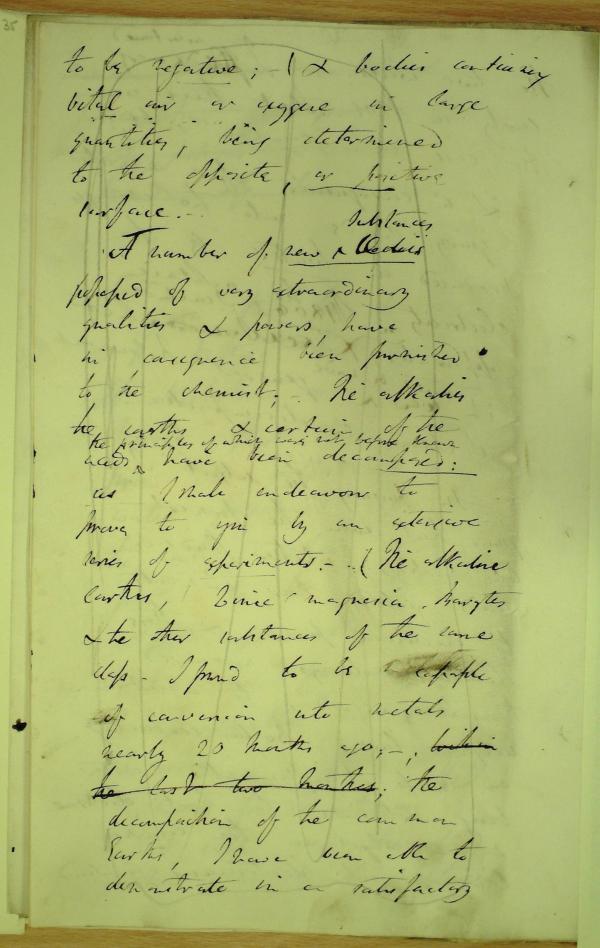 35
to be negative; - ( & bodies containing
vital air or oxygene in large
quantities, being determined
to the opposite, or positive
surface. -
substances
A number of new & Bodies
possessed of very extraordinary
qualities & powers, have
in consequence been furnished
to the chemist; The alkalies
the earths & certain of the
the principles of which were not before known
acids, have been decomposed:
as I shall endeavour to
prove to you by an extensive
series of experiments. - (The alkaline
Earths, Lime magnesia, Barytes
& the other substances of the same
class - I found to be capable
of conversion into metals
nearly 20 Months ago; -; within
the last two months; the
decomposition of the common
Earths, I have been able to
demonstrate in a satisfactory